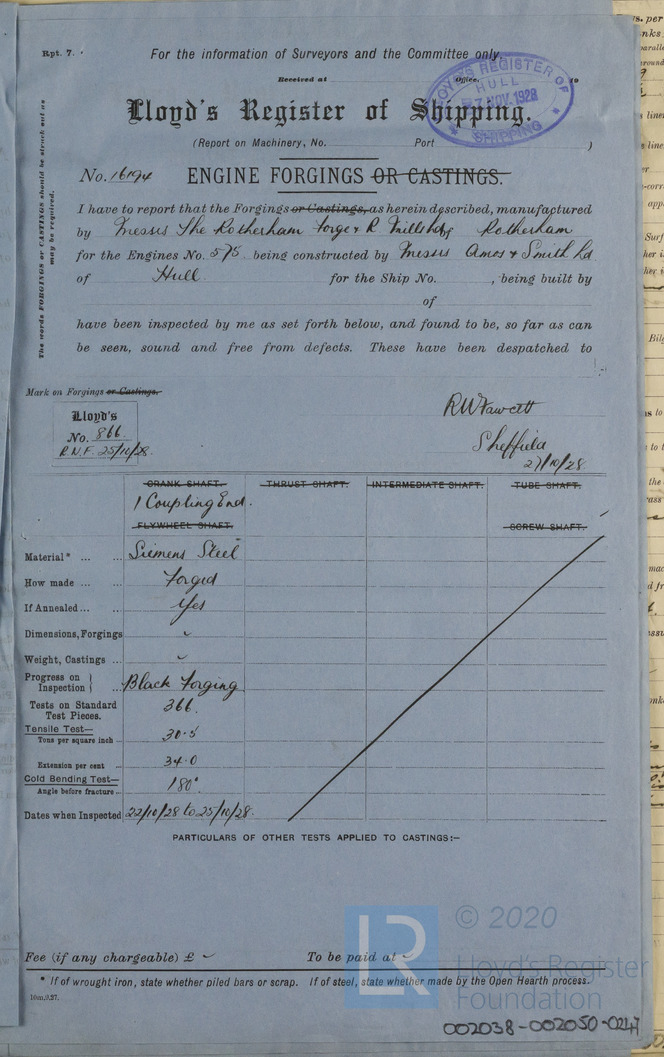 Rpt. 7.
For the information of Surveyors and the Committee only.
Received at Office. 19
LLOYD'S REGISTER OF
HULL
7 NOV. 1928
SHIPPING
Lloyd's Register of Shipping.
(Report on Machinery, No. Port )
No. 16194 ENGINE FORGINGS OR CASTINGS.
The words FORGINGS or CASTINGS should be struck out as
may be required.
I have to report that the Forgings or Castings, as herein described, manufactured
by Messrs The Rotherham Forge & R. Mills Rotherham
for the Engines No. 575 being constructed by Messrs Amos & Smith Ld
of Hull. for the Ship No. , being built by
of
have been inspected by me as set forth below, and found to be, so far as can
be seen, sound and free from defects. These have been despatched to
Mark on Forgings or Castings.
Lloyd's
No. 866.
25/10/28.
RW Fawcett
Sheffield
27/10/28
CRANK SHAFT. THRUST SHAFT. INTERMEDIATE SHAFT. TUBE SHAFT.
1 Coupling End.
FLYWHEEL SHAFT. SCREW SHAFT.
Material* ... ... Siemens Steel
How made ... ... Forged
If Annealed ... ... Yes
Dimensions, Forgings
Weight, Castings ...
Progress on
Inspection } ... Black Forging
Tests on Standard
Test Pieces. 366.
Tensile Test—
Tons per square inch ... 30·5
Extension per cent ... 34·0
Cold Bending Test—
Angle before fracture ... 180°
Dates when Inspected 22/10/28 to 25/10/28.
PARTICULARS OF OTHER TESTS APPLIED TO CASTINGS:—
© 2020
LR
Lloyd's Register
Foundation
Fee (if any chargeable) £ To be paid at
* If of wrought iron, state whether piled bars or scrap. If of steel, state whether made by the Open Hearth process.
10m,9.27.
002038-002050-0247